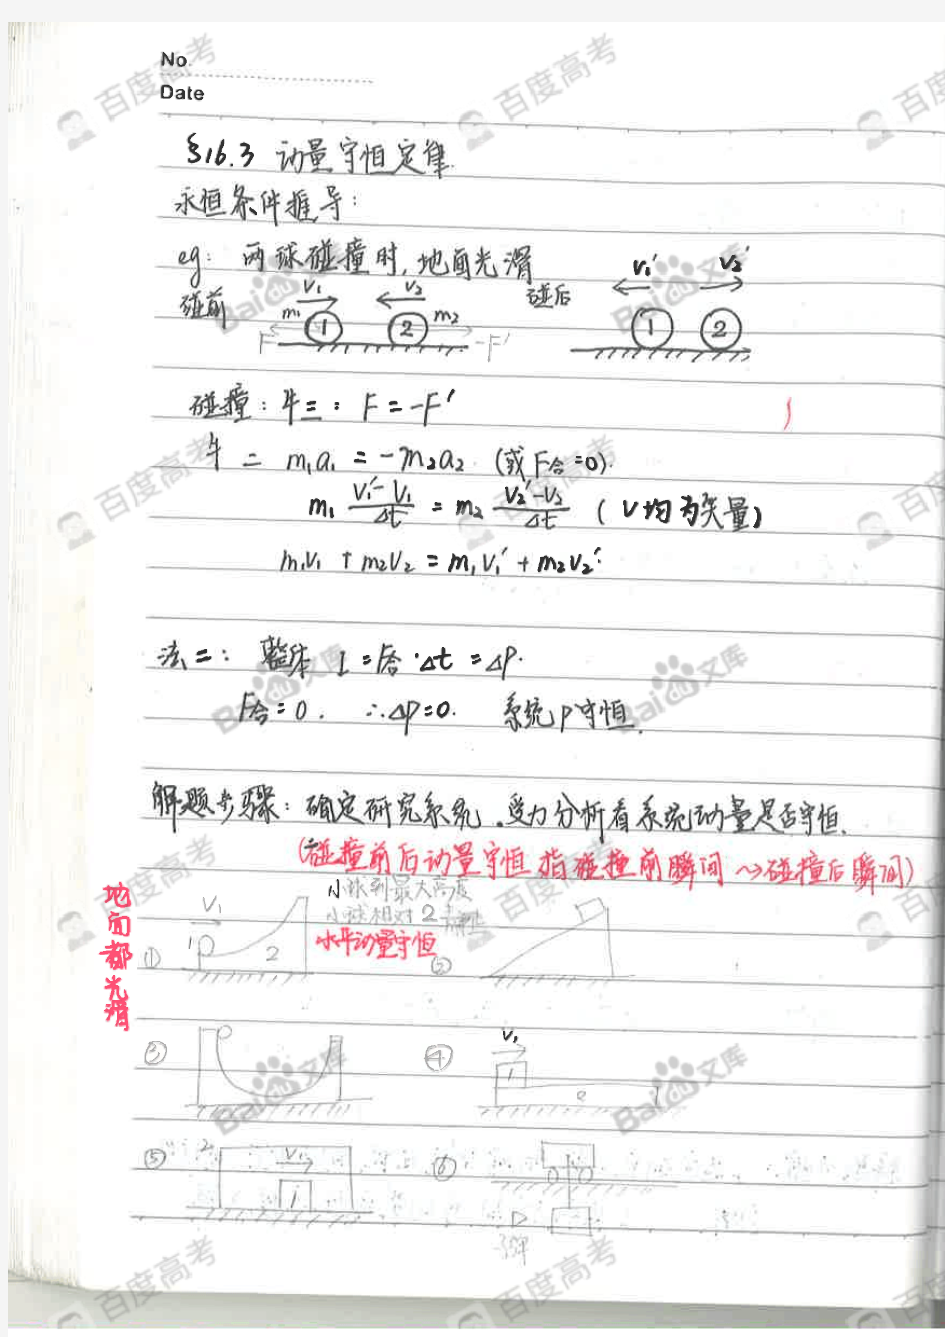 No.
Date
§16.3 动量守恒定律.
永恒条件推导:
eg: 两球碰撞时,地面光滑
碰前 V₁ V₂ 碰后 V₁′ V₂′
m₁ ① ② m₂ ① ②
F -F′
碰撞: 牛三: F=-F′
牛二 m₁a₁ = -m₂a₂. (或F合=0).
m₁ (V₁′-V₁)/Δt = m₂ (V₂′-V₂)/Δt (V均为矢量)
m₁V₁ + m₂V₂ = m₁V₁′ + m₂V₂′
法二: 整体 I=F合·Δt=ΔP.
F合=0. ∴ΔP=0. 系统P守恒.
解题步骤: 确定研究系统.受力分析看系统动量是否守恒.
(碰撞前后动量守恒指碰撞前瞬间~碰撞后瞬间)
地面都光滑
① V₁ 1 2
小球到最大高度
小球相对2静止
水平动量守恒
②
③
④ V₁ 1 2
⑤ 2 V₁ 1
⑥
子弹
百度高考
Baidu文库